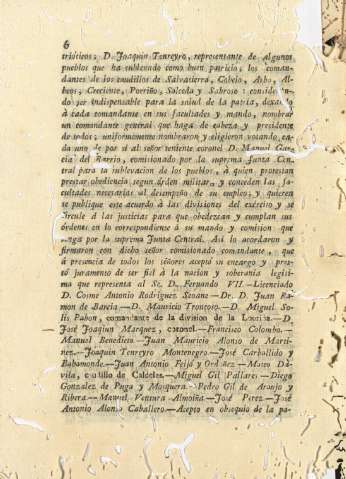 6
trióticos; D. Joaquin Tenreyro, representante de Algunos
pueblos que ha sublevado como buen patricio, los coman-
dantes de los caudillos de Salvatierra, Cobelo, Arbo, Al-
beos, Creciente, Porriño, Salceda y Sabroso: consideran-
do ser indispensable para la salud de la patria, dexan
á cada comandante en sus facultades y mando, nombrar
un comandante general que haga de cabeza y presidente
de todos; uniformemente nombraron y eligieron, votando ca-
da uno de por sí al señor teniente coronel D. Manuel Gar-
cía del Barrio, comisionado por la suprema Junta Cen-
tral para la sublevacion de los pueblos, á quien protestan
prestar obediencia segun órden militar, y conceden las fa-
cultades necesarias al desempeño de su empleo, y quieren
se publique este acuerdo á las divisiones del exército, y se
circule á las justicias para que obedezcan y cumplan sus
órdenes en lo correspondiente á su mando y comision que
por la suprema Junta Central. Así lo acordaron y
firmaron con dicho señor comisionado comandante, que
á presencia de todos los señores aceptó su encargo y pres-
tó juramento de ser fiel á la nacion y soberanía legíti-
ma que representa al Sr. D. Fernando VII.—Licenciado
D. Cosme Antonio Rodriguez Seoane—Dr. D. Juan Ra-
mon de Barcia—D. Mauricio Troncoso.—D. Miguel So-
lis Pabon, comandante de la division de la D.
José Joaquin Marquez, coronel.—Francisco Colombo.—
Manuel Benedicto—Juan Mauricio Alonso de Martí-
nez.—Joaquin Tenreyro Montenegro.—José Carballido y
Bahamonde.—Juan Antonio Feijó y Ordoñez—Mateo Dá-
vila, caudillo de Caldelas.—Miguel Gil Pallares—Diego
Gonzalez de Puga y Mosquera.—Pedro Gil de Araujo y
Ribera—Manuel Ventura Almoiña.—José Perez—José
Antonio Alonso Caballero.—Acepto en obsequio de la pa-